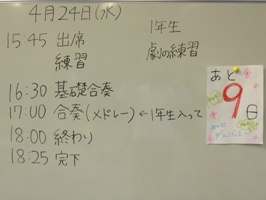 4月24日(水)
15:45 出席
練習
1年生
劇の練習
16:30 基礎合奏
17:00 合奏(メドレー)←1年生入って
18:00 終わり
18:25 完下
あと
9
日